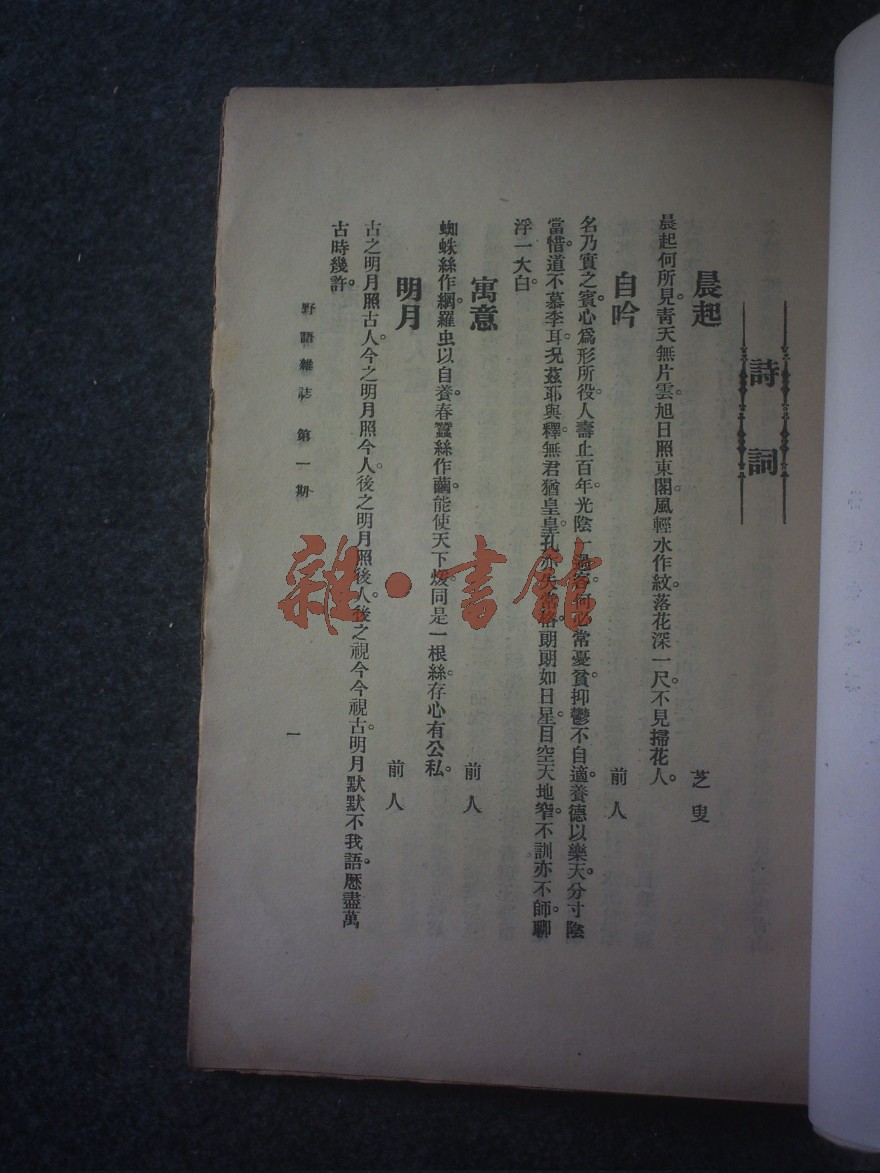 詩詞
晨起
芝叟
晨起何所見。青天無片雲。旭日照東閣。風輕水作紋。落花深一尺。不見掃花人。
自吟
前人
名乃實之賓。心爲形所役。人壽止百年。光陰一過客。何必常憂貧。抑鬱不自適。養德以樂天。分寸陰
當惜。道不慕李耳。況茲耶與釋。無君猶皇皇。孔亦朗朗如日星。目空天地窄。不訓亦不師。聊
浮一大白。
寓意
前人
蜘蛛絲作網。羅虫以自養。春蠶絲作繭。能使天下煖。同是一根絲。存心有公私。
明月
前人
古之明月照古人。今之明月照今人。後之明月照後人。後之視今今視古。明月默默不我語。歷盡萬
古時幾許。
野語雜誌第一期
一
雜·書館